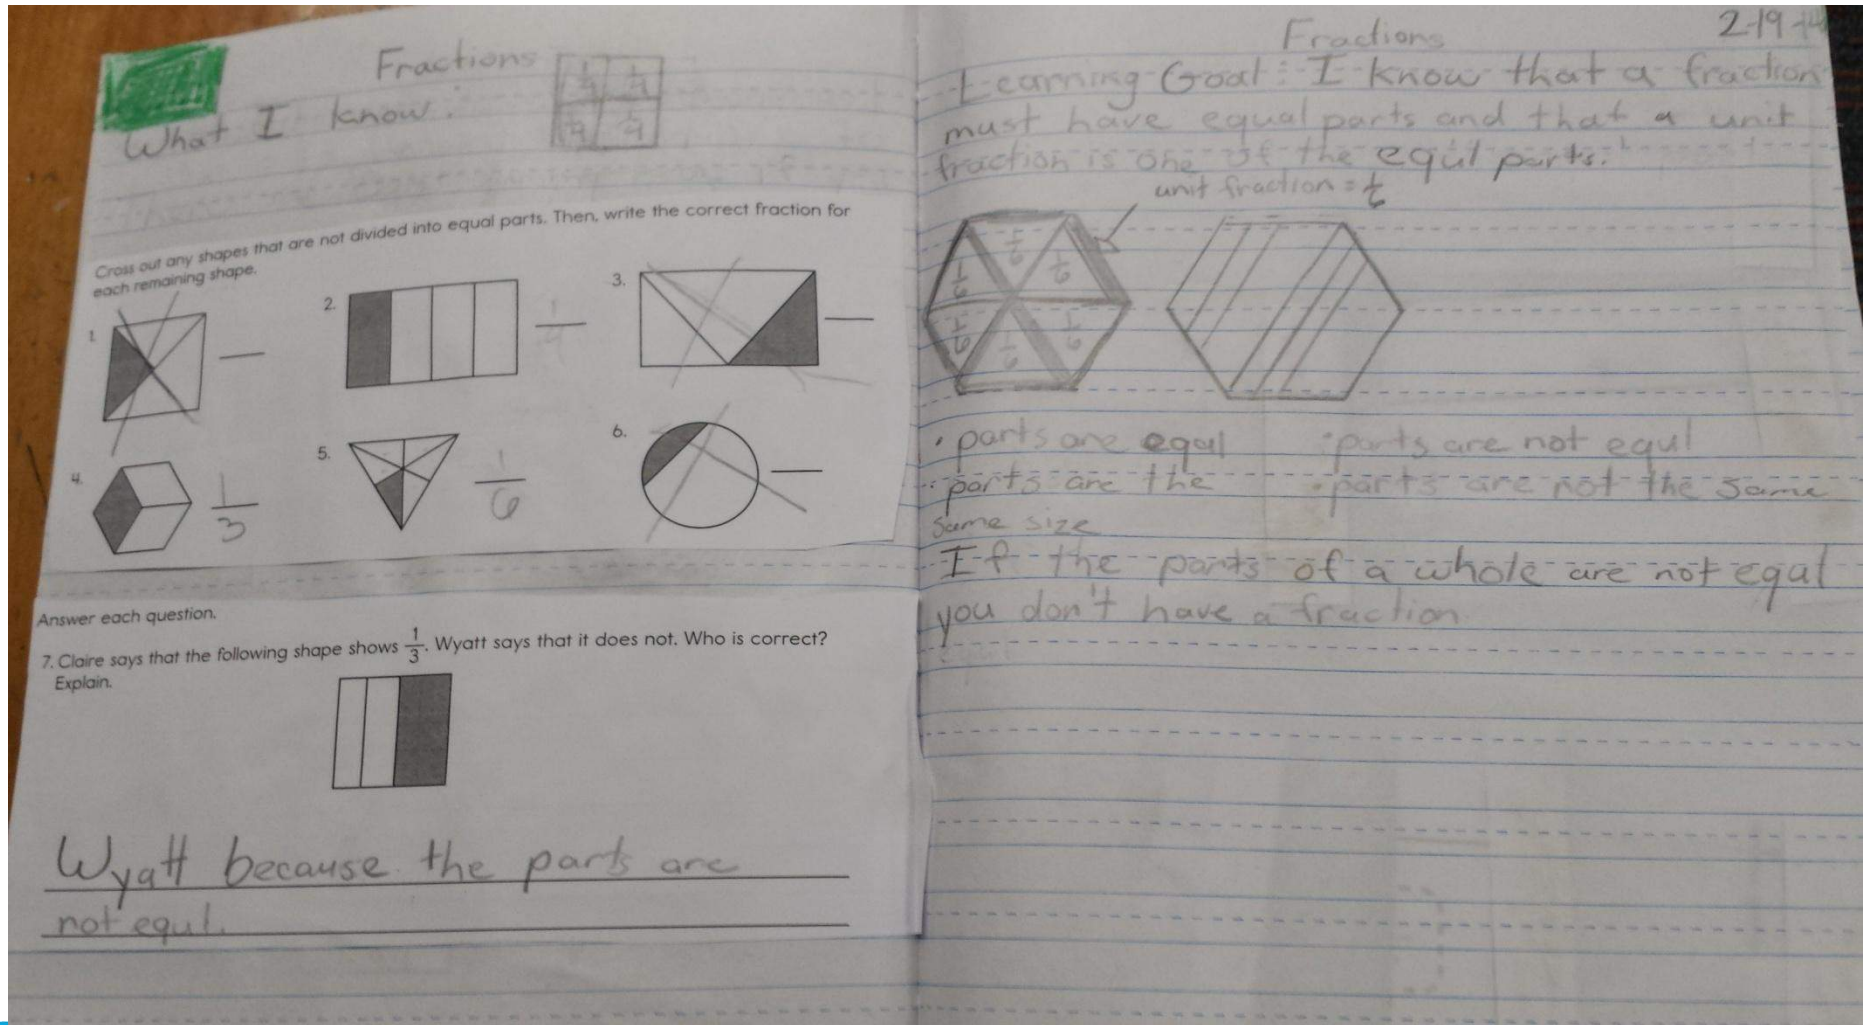 Fractions
What I know:
1/4 1/4
1/4 1/4
Cross out any shapes that are not divided into equal parts. Then, write the correct fraction for
each remaining shape.
1.
2. 1/4
3.
4. 1/3
5. 1/6
6.
Answer each question.
7. Claire says that the following shape shows 1/3. Wyatt says that it does not. Who is correct?
Explain.
Wyatt because the parts are
not equl.
2-19-14
Fractions
Learning Goal: I know that a fraction
must have equal parts and that a unit
fraction is one of the equl parts.
unit fraction = 1/6
1/6 1/6 1/6
1/6 1/6 1/6
• parts are eqal
• parts are the
same size
• parts are not equl
• parts are not the same
If the parts of a whole are not eqal
you don't have a fraction